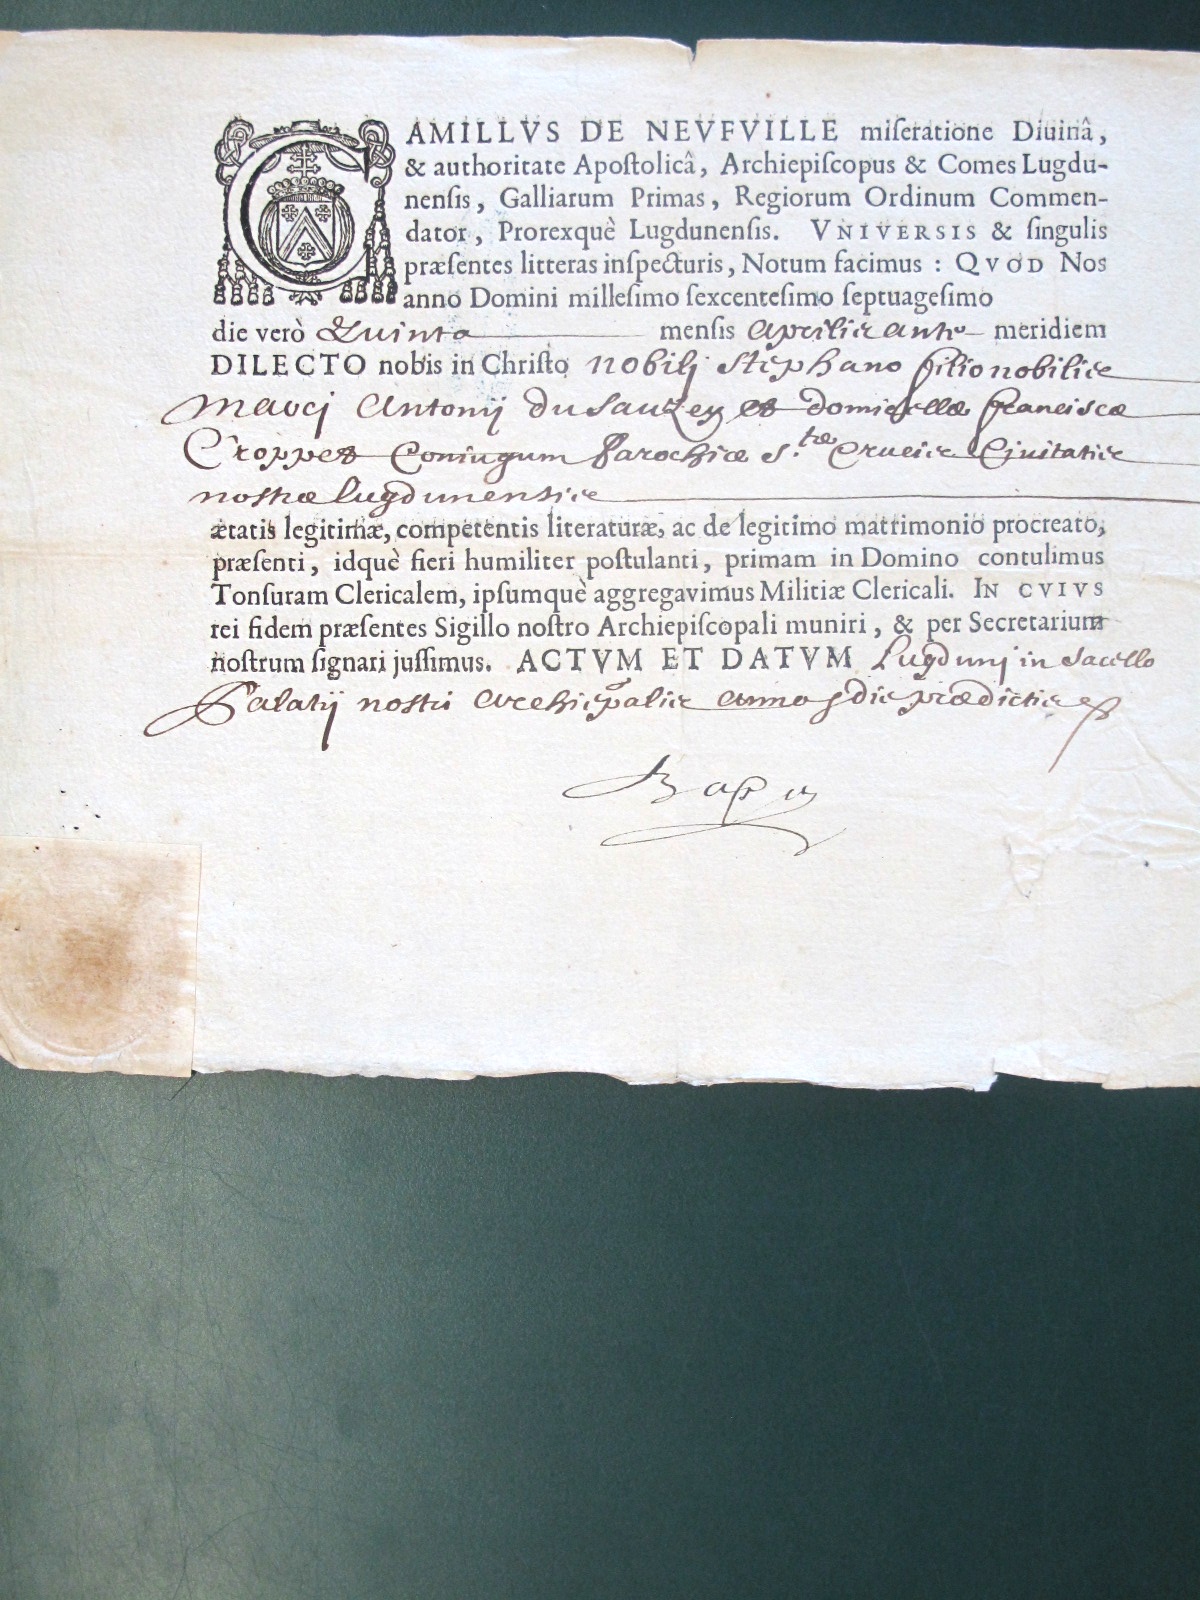 CAMILLVS DE NEVFVILLE miseratione Diuinâ,
& authoritate Apostolicâ, Archiepiscopus & Comes Lugdu-
nensis, Galliarum Primas, Regiorum Ordinum Commen-
dator, Prorexquè Lugdunensis. VNIVERSIS & singulis
præsentes litteras inspecturis, Notum facimus : QVOD Nos
anno Domini millesimo sexcentesimo septuagesimo
die verò Quinta mensis Aprilis ante meridiem
DILECTO nobis in Christo nobilj Stephano filio nobilis
Marci Antonij du Sauzey et domicellæ franciscæ
Croppet Coniugum Parochiæ S.tæ Crucis Ciuitatis
nostræ Lugdunensis
ætatis legitimæ, competentis literaturæ, ac de legitimo matrimonio procreato,
præsenti, idquè fieri humiliter postulanti, primam in Domino contulimus
Tonsuram Clericalem, ipsumquè aggregavimus Militiæ Clericali. IN CVIVS
rei fidem præsentes Sigillo nostro Archiepiscopali muniri, & per Secretarium
nostrum signari jussimus. ACTVM ET DATVM Lugdunj in sacello
Palatij nostri Archiepalis anno & die prædictis